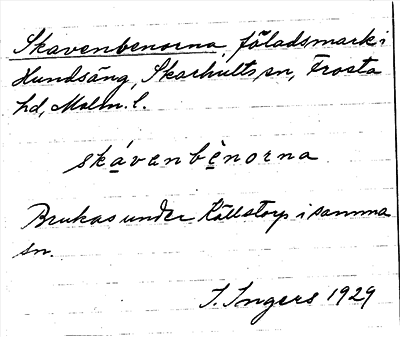 Skavenbenorna, fäladsmark i
Hundsäng, Skarhults sn, Frosta
hd, Malm. l.
skávenbènorna
Brukas under Källstorp i samma
sn.
I. Ingers 1929